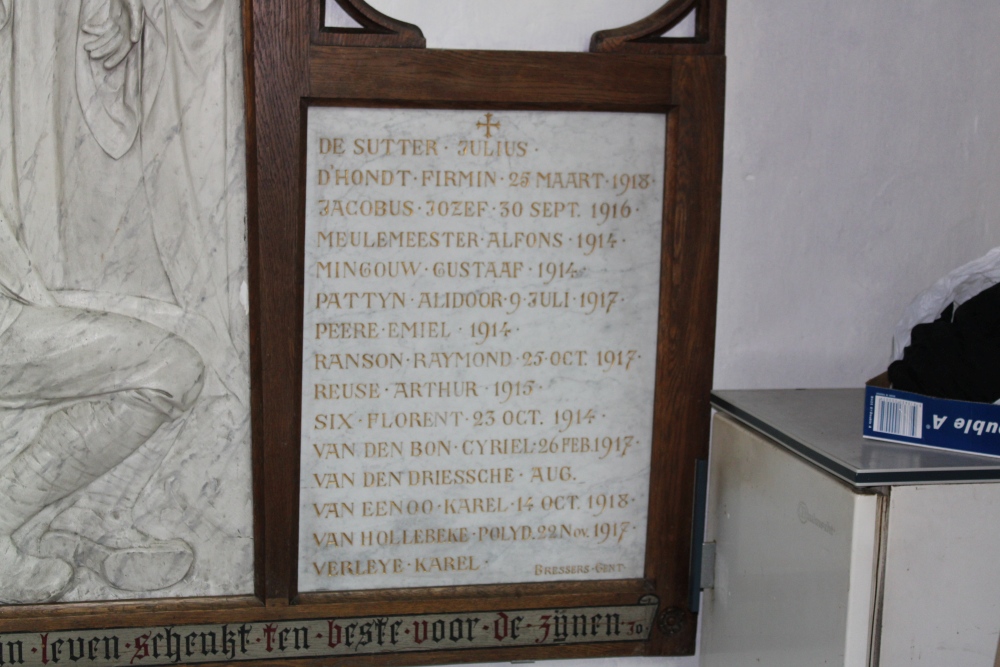 DE SUTTER · JULIUS ·
D'HONDT · FIRMIN · 25 MAART · 1918 ·
JACOBUS · JOZEF · 30 SEPT. 1916 ·
MEULEMEESTER · ALFONS · 1914 ·
MINGOUW · GUSTAAF · 1914 ·
PATTYN · ALIDOOR · 9 JULI · 1917 ·
PEERE · EMIEL · 1914 ·
RANSON · RAYMOND · 25 OCT. 1917 ·
REUSE · ARTHUR · 1915 ·
SIX · FLORENT · 23 OCT. 1914 ·
VAN DEN BON · CYRIEL · 26 FEB. 1917 ·
VAN DEN DRIESSCHE · AUG.
VAN EENOO · KAREL · 14 OCT. 1918 ·
VAN HOLLEBEKE · POLYD. 22 NOV. 1917 ·
VERLEYE · KAREL ·
BRESSERS · GENT ·
leven · schenkt · ten · beste · voor · de · zijnen · Jo.
ouble A